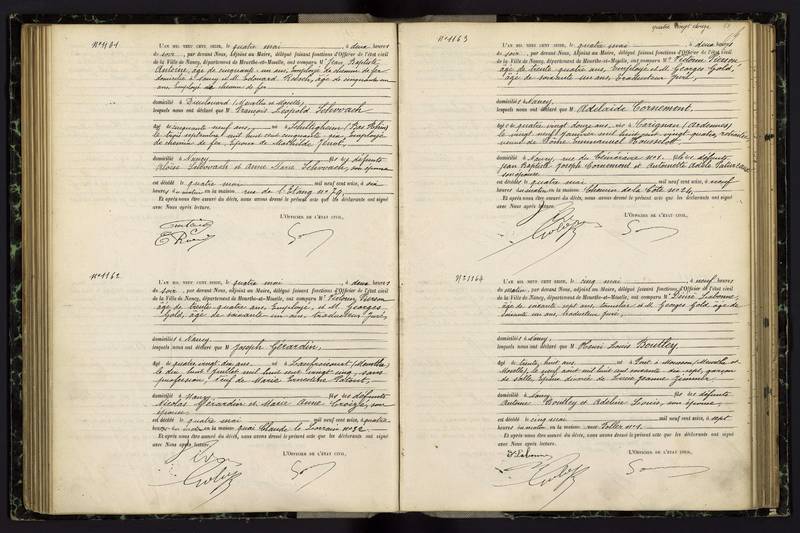 N° 1161
L'AN MIL NEUF CENT SEIZE, le quatre mai, à deux heures
du soir, par devant Nous, Adjoint au Maire, délégué faisant fonctions d'Officier de l'état civil
de la Ville de Nancy, département de Meurthe-et-Moselle, ont comparu M. Jean Baptiste
Antoine, âgé de cinquante un ans, Employé de chemin de fer
domicilié à Nancy et M. Edouard, âgé de cinquante un
ans, Employé de chemin de fer
domiciliés à Dieulouard (Meurthe et Moselle),
lesquels nous ont déclaré que M. François Léopold Schwoach
âgé de cinquante neuf ans, né à Schiltigheim (Bas Rhin)
le trois septembre mil huit cent cinquante six, Employé
de chemin de fer, époux de Mathilde
domicilié à Nancy, fils des défunts
Aloïse Schwoach et Anne Marie Schwoach, son épouse
est décédé le quatre mai mil neuf cent seize, à six
heures du matin en la maison rue de l'Etang n° 79.
Et après nous être assuré du décès, nous avons dressé le présent acte que les déclarants ont signé
avec Nous après lecture.
L'OFFICIER DE L'ÉTAT CIVIL,
N° 1162
L'AN MIL NEUF CENT SEIZE, le quatre mai, à deux heures
du soir, par devant Nous, Adjoint au Maire, délégué faisant fonctions d'Officier de l'état civil
de la Ville de Nancy, département de Meurthe-et-Moselle, ont comparu M. Victorin Pierson
âgé de trente quatre ans, Employé, et M. Georges
Gold, âgé de soixante un ans, traducteur juré,
domiciliés à Nancy
lesquels nous ont déclaré que M. Joseph Gérardin,
âgé de quatre vingt dix ans, né à (Meurthe)
le dix huit juillet mil huit cent vingt cinq, sans
profession, veuf de Marie Ernestine
domicilié à Nancy, fils des défunts
Nicolas Gérardin et Marie Anne Croizié, son
épouse
est décédé le quatre mai mil neuf cent seize, à quatre
heures du matin en la maison quai Claude le Lorrain n° 32
Et après nous être assuré du décès, nous avons dressé le présent acte que les déclarants ont signé
avec Nous après lecture.
L'OFFICIER DE L'ÉTAT CIVIL,
quatre vingt
N° 1163
L'AN MIL NEUF CENT SEIZE, le quatre mai, à deux heures
du soir, par devant Nous, Adjoint au Maire, délégué faisant fonctions d'Officier de l'état civil
de la Ville de Nancy, département de Meurthe-et-Moselle, ont comparu M. Victorin Pierson
âgé de trente quatre ans, employé et M. Georges Gold,
âgé de soixante un ans, traducteur juré,
domiciliés à Nancy
lesquels nous ont déclaré que M. Adelaïde Cornement,
âgée de quatre vingt douze ans, née à Carignan (Ardennes)
le vingt neuf janvier mil huit cent vingt quatre, rentière
veuve de Côme Emmanuel Rousselot
domiciliée à Nancy, rue du Téméraire n° 1. fille des défunts
Jean Baptiste Joseph Cornement et Antoinette Adèle
son épouse
est décédée le quatre mai mil neuf cent seize, à neuf
heures du matin en la maison Chemin de la Côte n° 24,
Et après nous être assuré du décès, nous avons dressé le présent acte que les déclarants ont signé
avec Nous après lecture.
L'OFFICIER DE L'ÉTAT CIVIL,
N° 1164
L'AN MIL NEUF CENT SEIZE, le cinq mai, à neuf heures
du matin, par devant Nous, Adjoint au Maire, délégué faisant fonctions d'Officier de l'état civil
de la Ville de Nancy, département de Meurthe-et-Moselle, ont comparu M. Désiré Labonne,
âgé de soixante sept ans, et M. Georges Gold âgé de
soixante un ans, traducteur juré,
domiciliés à Nancy,
lesquels nous ont déclaré que M. Henri Louis Boulley
âgé de trente huit ans, né à Pont à Mousson (Meurthe et
Moselle), le neuf août mil huit cent soixante dix sept, garçon
de salle, époux divorcé de Louise Jeanne Zimmer
domicilié à Nancy, fils des défunts
Antoine Boulley et Adeline Louis, son épouse,
est décédé le cinq mai mil neuf cent seize, à sept
heures du matin, en la maison rue n° 1.
Et après nous être assuré du décès, nous avons dressé le présent acte que les déclarants ont signé
avec Nous après lecture.
L'OFFICIER DE L'ÉTAT CIVIL,